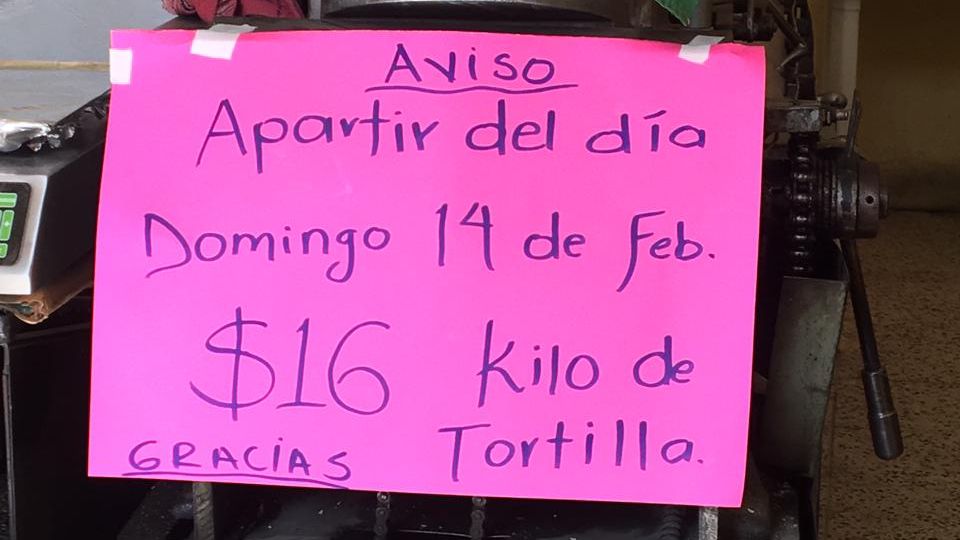 AViSO
Apartir del día
Domingo 14 de Feb.
$16 Kilo de
GRACiAS Tortilla.